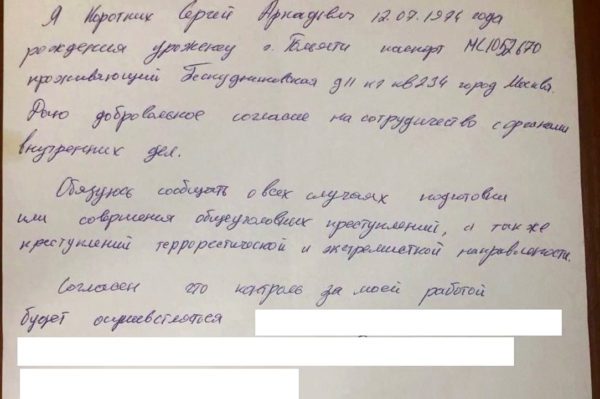 Я Коротких Сергей Аркадьевич 12.07.1974 года
рождения уроженец г. Тольятти паспорт МС1052670
проживающий Бескудниковская д11 к1 кв234 город Москва.
Даю добровольное согласие на сотрудничество с органами
внутренних дел.
Обязуюсь сообщать о всех случаях подготовки
или совершения общеуголовных преступлений, а так же
преступлений террорестической и экстремисткой направленности.
Согласен что контроль за моей работой
будет